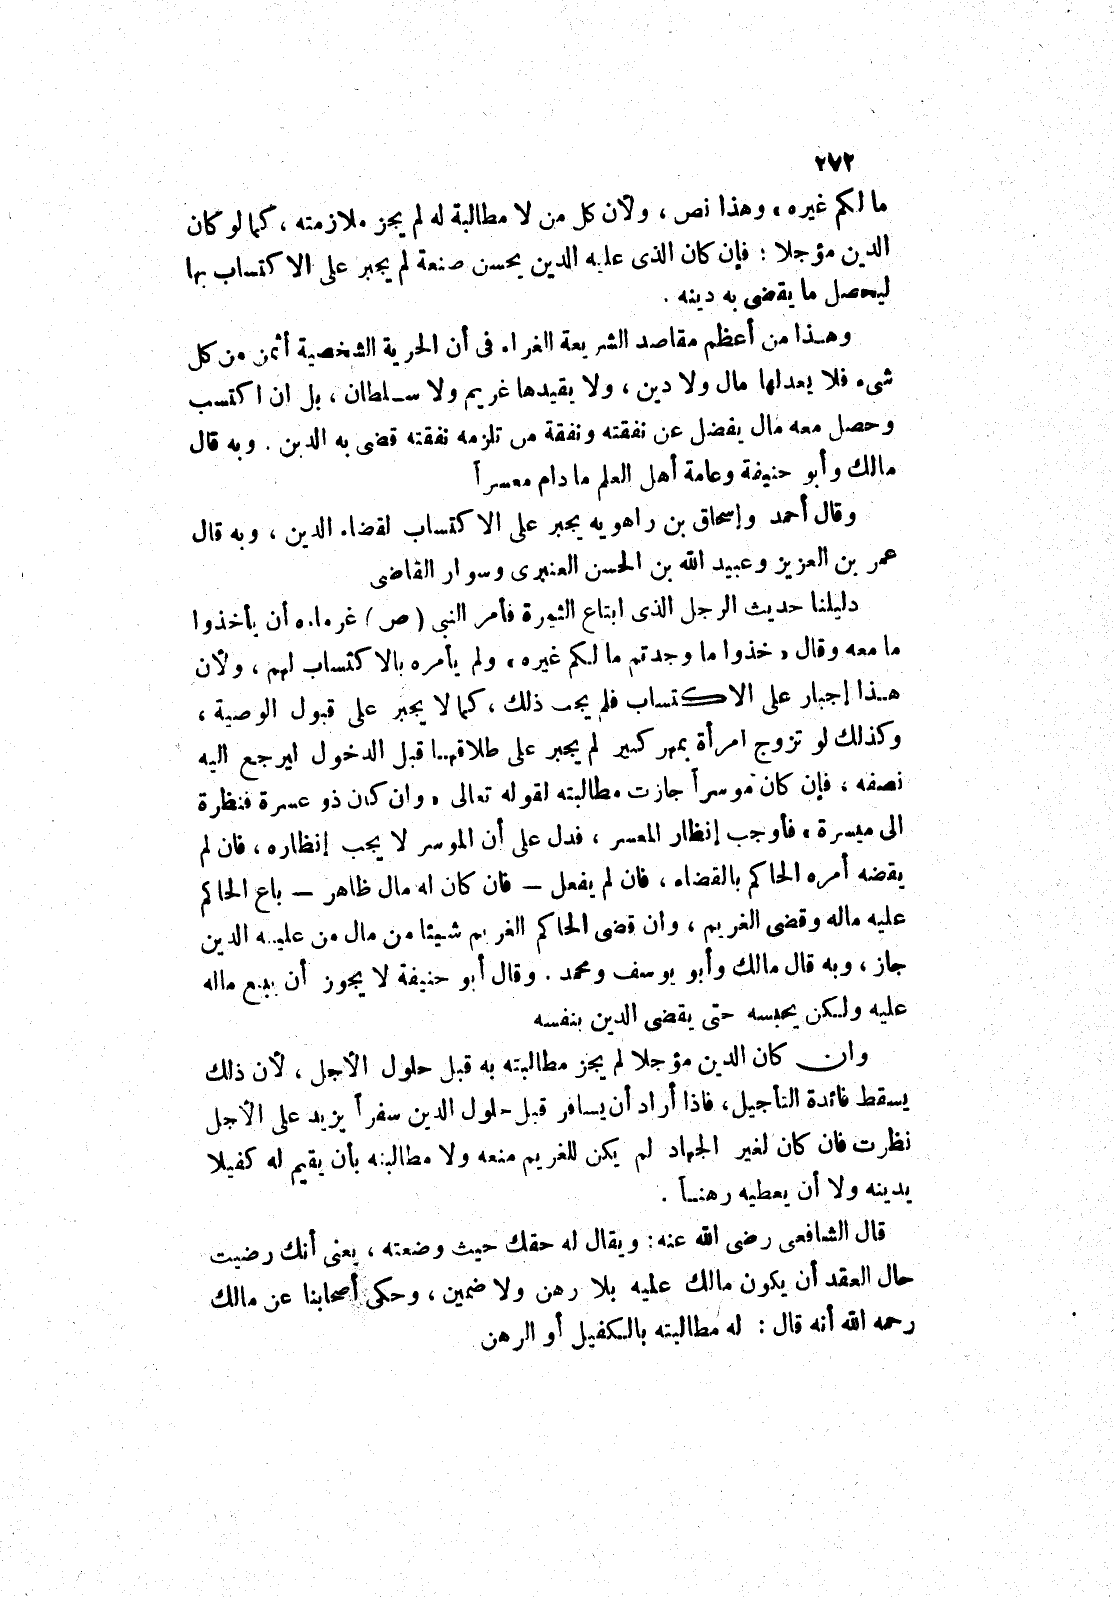 ٢٧٢
ما لكم غيره، وهذا نص، ولأن كل من لا مطالبة له لم يجز ملازمته، كما لو كان
الدين مؤجلا: فإن كان الذى عليه الدين يحسن صنعة لم يجبر على الاكتساب بها
ليحصل ما يقضى به دينه.
وهـذا من أعظم مقاصد الشريعة الغراء فى أن الحرية الشخصية أثمن من كل
شىء فلا يعدلها مال ولا دين، ولا يقيدها غريم ولا سـلطان، بل ان اكتسب
وحصل معه مال يفضل عن نفقته ونفقة من تلزمه نفقته قضى به الدين. وبه قال
مالك وأبو حنيفة وعامة أهل العلم ما دام معسراً
وقال أحمد وإسحاق بن راهويه يجبر على الاكتساب لقضاء الدين، وبه قال
عمر بن العزيز وعبيد الله بن الحسن العنبرى وسوار القاضى
دليلنا حديث الرجل الذى ابتاع الثمرة فأمر النبى (ص) غرماءه أن يأخذوا
ما معه وقال «خذوا ما وجدتم ما لكم غيره» ولم يأمره بالاكتساب لهم، ولأن
هـذا إجبار على الاكتساب فلم يجب ذلك، كما لا يجبر على قبول الوصية،
وكذلك لو تزوج امرأة بمهر كبير لم يجبر على طلاقهـا قبل الدخول ليرجع اليه
نصفه، فإن كان موسراً جازت مطالبته لقوله تعالى «وان كان ذو عسرة فنظرة
الى ميسرة» فأوجب إنظار المعسر، فدل على أن الموسر لا يجب إنظاره، فان لم
يقضه أمره الحاكم بالقضاء، فان لم يفعل — فان كان له مال ظاهر — باع الحاكم
عليه ماله وقضى الغريم، وان قضى الحاكم الغريم شيئا من مال من عليـه الدين
جاز، وبه قال مالك وأبو يوسف ومحمد. وقال أبو حنيفة لا يجوز أن يبيع ماله
عليه ولكن يحبسه حتى يقضى الدين بنفسه
وان كان الدين مؤجلا لم يجز مطالبته به قبل حلول الأجل، لأن ذلك
يسقط فائدة التأجيل، فاذا أراد أن يسافر قبل حلول الدين سفراً يزيد على الأجل
نظرت فان كان لغير الجهاد لم يكن للغريم منعه ولا مطالبته بأن يقيم له كفيلا
بدينه ولا أن يعطيه رهنـاً.
قال الشافعى رضى الله عنه: ويقال له حقك حيث وضعته، يعنى أنك رضيت
حال العقد أن يكون مالك عليه بلا رهن ولا ضمين، وحكى أصحابنا عن مالك
رحمه الله أنه قال: له مطالبته بالكفيل أو الرهن